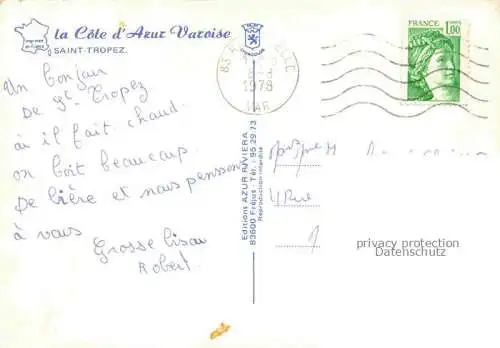 la Côte d'Azur Varoise
SAINT-TROPEZ
Un bonjour
De St Tropez
ou il fait chaud.
on boit beaucoup
De bière et nous pensons
à vous
Grosse bisou
Robert.
FRANCE
1,00
83
1978
VAR
Editions AZUR RIVIERA
83600 Fréjus - Tél. : 95.29.73
Reproduction interdite
M
4 Rue
privacy protection
Datenschutz